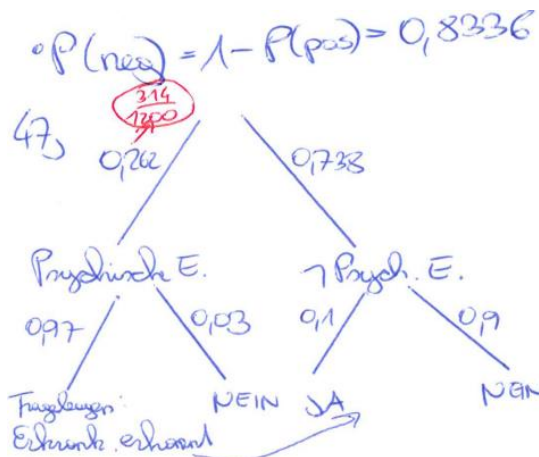 • P(neg) = 1 - P(pos) = 0,8336
314
1200
47,
0,262 0,738
Psychische E. ¬ Psych. E.
0,97 0,03 0,1 0,9
Fragebogen: NEIN JA NEIN
Erkrank. erkannt